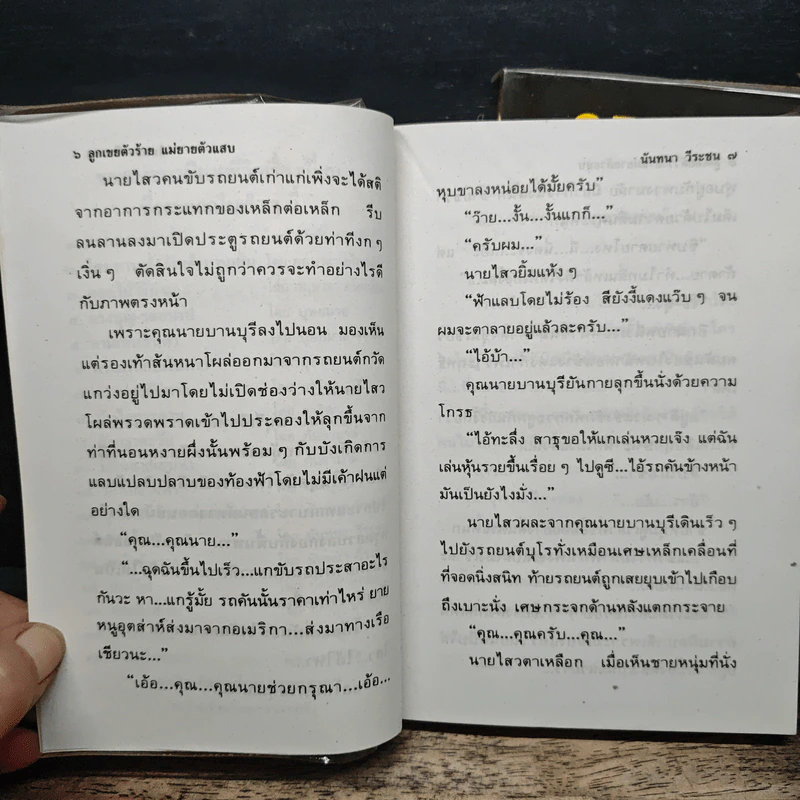 ๖ ลูกเขยตัวร้าย แม่ยายตัวแสบ
นายไสวคนขับรถยนต์เก่าแก่เพิ่งจะได้สติ
จากอาการกระแทกของเหล็กต่อเหล็ก รีบ
ลนลานลงมาเปิดประตูรถยนต์ด้วยท่าทีงก ๆ
เงิ่น ๆ ตัดสินใจไม่ถูกว่าควรจะทำอย่างไรดี
กับภาพตรงหน้า
เพราะคุณนายบานบุรีลงไปนอน มองเห็น
แต่รองเท้าส้นหนาโผล่ออกมาจากรถยนต์กวัด
แกว่งอยู่ไปมาโดยไม่เปิดช่องว่างให้นายไสว
โผล่พรวดพราดเข้าไปประคองให้ลุกขึ้นจาก
ท่าที่นอนหงายผึ่งนั้นพร้อม ๆ กับบังเกิดการ
แลบแปลบปลาบของท้องฟ้าโดยไม่มีเค้าฝนแต่
อย่างใด
“คุณ...คุณนาย...”
“...ฉุดฉันขึ้นไปเร็ว...แกขับรถประสาอะไร
กันวะ หา...แกรู้มั้ย รถคันนั้นราคาเท่าไหร่ ยาย
หนูอุตส่าห์ส่งมาจากอเมริกา...ส่งมาทางเรือ
เชียวนะ...”
“เอ้อ...คุณ...คุณนายช่วยกรุณา...เอ้อ...
นันทนา วีระชน ๗
หุบขาลงหน่อยได้มั้ยครับ”
“ว๊าย...งั้น...งั้นแกก็...”
“ครับผม...”
นายไสวยิ้มแห้ง ๆ
“ฟ้าแลบโดยไม่ร้อง สียังงี้แดงแว๊บ ๆ จน
ผมจะตาลายอยู่แล้วละครับ...”
“ไอ้บ้า...”
คุณนายบานบุรียันกายลุกขึ้นนั่งด้วยความ
โกรธ
“ไอ้ทะลึ่ง สาธุขอให้แกเล่นหวยเจ๊ง แต่ฉัน
เล่นหุ้นรวยขึ้นเรื่อย ๆ ไปดูซี...ไอ้รถคันข้างหน้า
มันเป็นยังไงมั่ง...”
นายไสวผละจากคุณนายบานบุรีเดินเร็ว ๆ
ไปยังรถยนต์บุโรทั่งเหมือนเศษเหล็กเคลื่อนที่
ที่จอดนิ่งสนิท ท้ายรถยนต์ถูกเสยยุบเข้าไปเกือบ
ถึงเบาะนั่ง เศษกระจกด้านหลังแตกกระจาย
“คุณ...คุณครับ...คุณ...”
นายไสวตาเหลือก เมื่อเห็นชายหนุ่มที่นั่ง